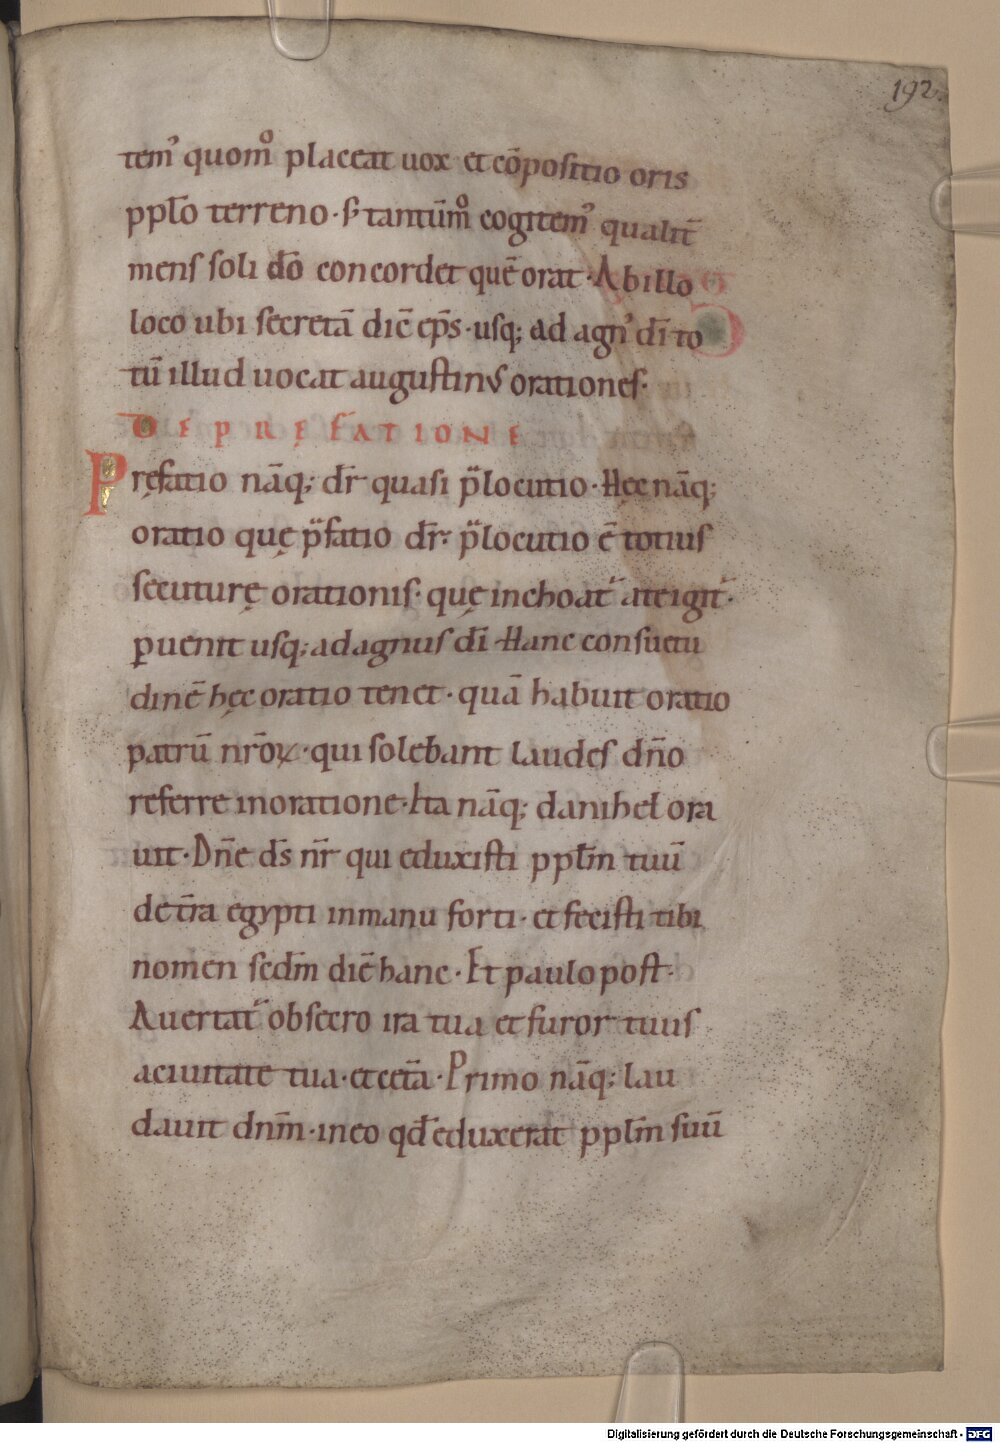 192.
tem᾽ quomͦ placeat uox et cōpositio oris
pplo̅ terreno · s; tantūmͦ cogitem᾽ qualit̅
mens soli do̅ concordet quē orat · Ab illo
loco ubi secretā dic̅ ep̅s · usq; ad agn᾽ di̅ to
tū illud uocat augustinus orationes·
DE PREFATIONE
Pręfatio nāq; dr̅ quasi p̈locutio · Hęc nāq;
oratio quę p̈fatio dr̅· p̈locutio ē totius
secuturę orationis · quę inchoat᷑ a te igit᷑·
ꝑuenit usq; ad agnus di̅ · Hanc consuetu
dinē hęc oratio tenet · quā habuit oratio
patrū nr̅oꝝ · qui solebant laudes dn̅o
referre in oratione · Ita nāq; danihel ora
uit · Dn̅e ds̅ nr̅ qui eduxisti pplm̅ tuū
de tr̅a egypti in manu forti · et fecisti tibi
nomen scdm̅ diē hanc · Et paulo post·
Auertat᷑ obsecro ira tua et furor tuus
a ciuitate tua · et cet̅a · Primo nāq; lau
dauit dnm̅ · in eo qd̅ eduxerat pplm̅ suū
Digitalisierung gefördert durch die Deutsche Forschungsgemeinschaft - DFG